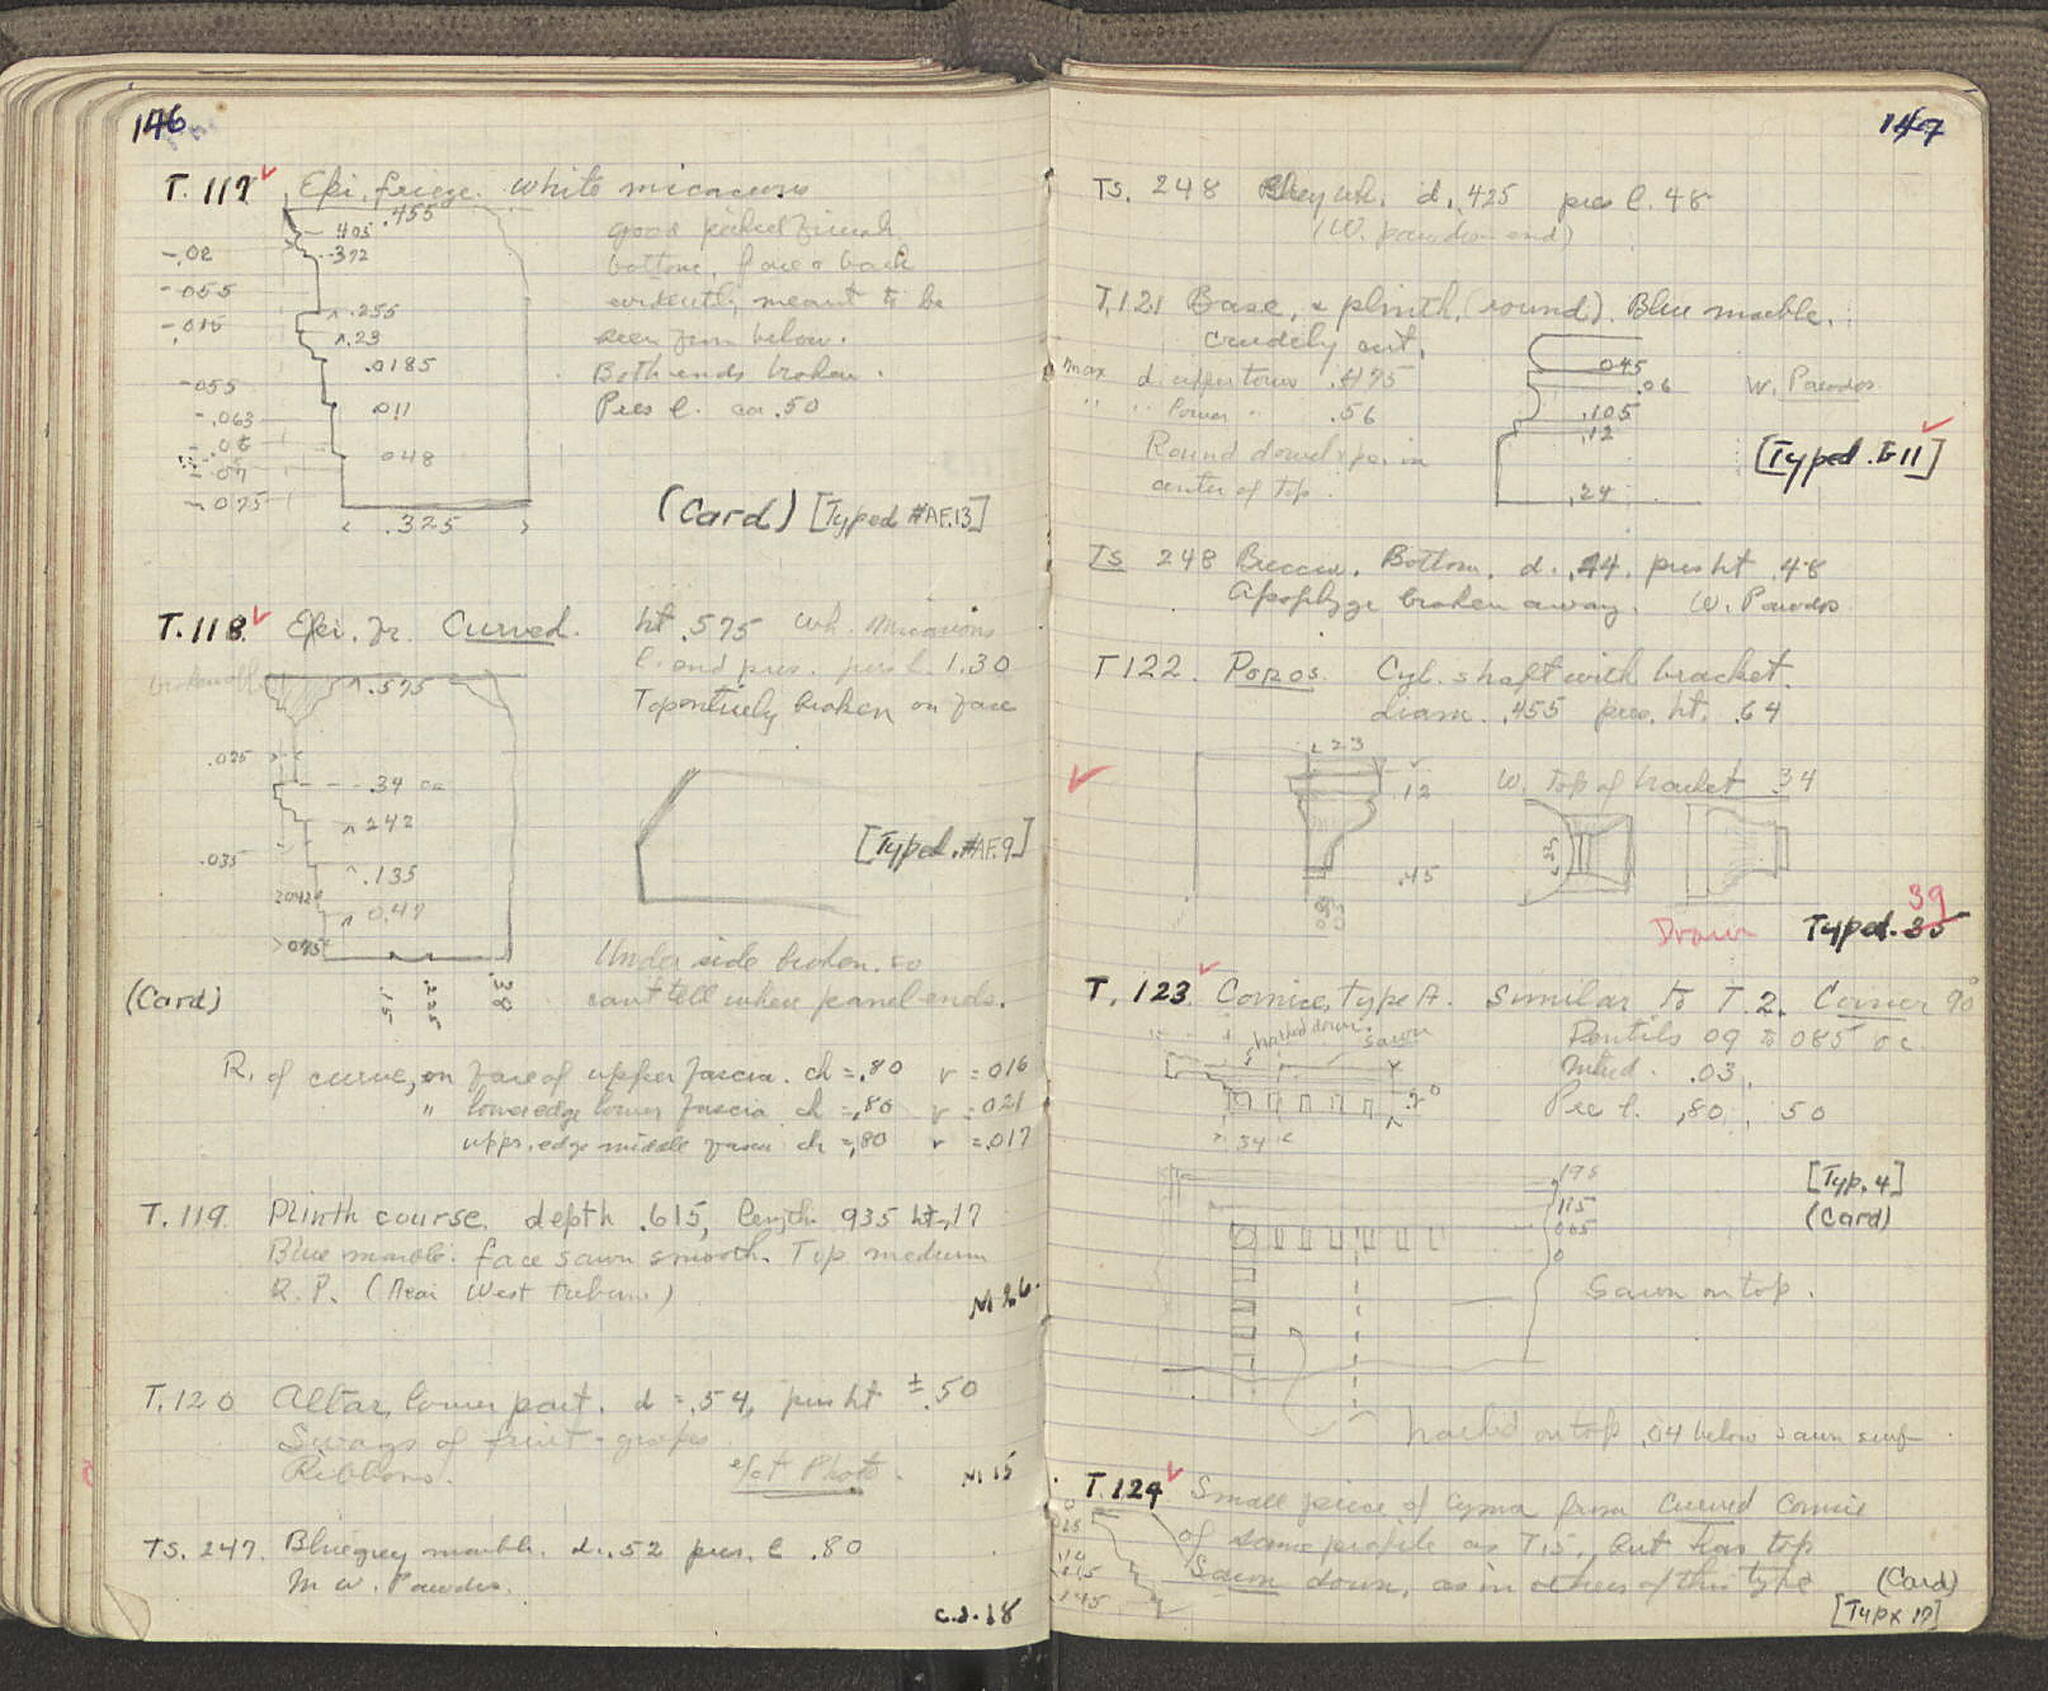 146
T. 117 Epi. frieze. White micaceous
.455
.405
.372
-.02
-.055
-.015
.255
.23
.0185
-.055
.011
-.063
.048
-.07
-.075
.325
good picked finish
bottom, face & back
evidently meant to be
seen from below.
Both ends broken.
Pres l. ca .50
(Card) [Typed #AF.13]
T. 118. Epi. fr. Curved. ht .575 Wh. Micaceous
l. end pres. pres l. 1.30
Top entirely broken on face
broken off
.575
.025
.34 ca
.242
.035
.135
.042
0.47
.075
.15
.225
.38
[Typed. #AF.9]
Under side broken. so
can't tell where panel ends.
(Card)
R. of curve, on face of upper fascia. ch = .80 r = 016
" lower edge lower fascia ch = .80 r = .021
upper edge middle fascia ch = .80 r = .017
T. 119. Plinth course. depth .615, length .935 ht .17
Blue marble. face sawn smooth. Top medium
R. P. (Near West
M 26.
T. 120 Altar, lower part. d = .54, pres ht ± .50
Swags of fruit - grapes
Ribbons.
Photo.
M 15
TS. 247. Bluegrey marble. d. .52 pres. l .80
W. Parodos.
C.S. 18
147
TS. 248 d. .425 pres l. 48
(W. parodos end)
T. 121 Base, & plinth, (round). Blue marble.
crudely cut.
max d. upper torus .475
" " lower " .56
Round dowel in
center of top.
.045
.06
.105
.12
.24
W. Parodos
[Typed. E 11]
TS 248 Breccia. Bottom. d. .44. pres ht .48
Apophyge broken away. W. Parodos
T 122. Poros. Cyl. shaft with bracket.
diam. .455 pres. ht. .64
.23
.12
.45
W. Top of bracket .34
Drawn
39
Typed. 35
T. 123 Cornice, type A. Similar to T. 2. Corner 90°
hacked down.
sawn
Dentils 09 to 085 oc
.03.
Pres l. .80, .50
.34
195
115
065
0
[Typ. 4]
(Card)
Sawn on top.
hacked on top .04 below sawn surf
T. 124 Small piece of cyma from curved cornice
of same profile as T 15, but has top
sawn down, as in others of this type
.145
(Card)
[Typ x 17]